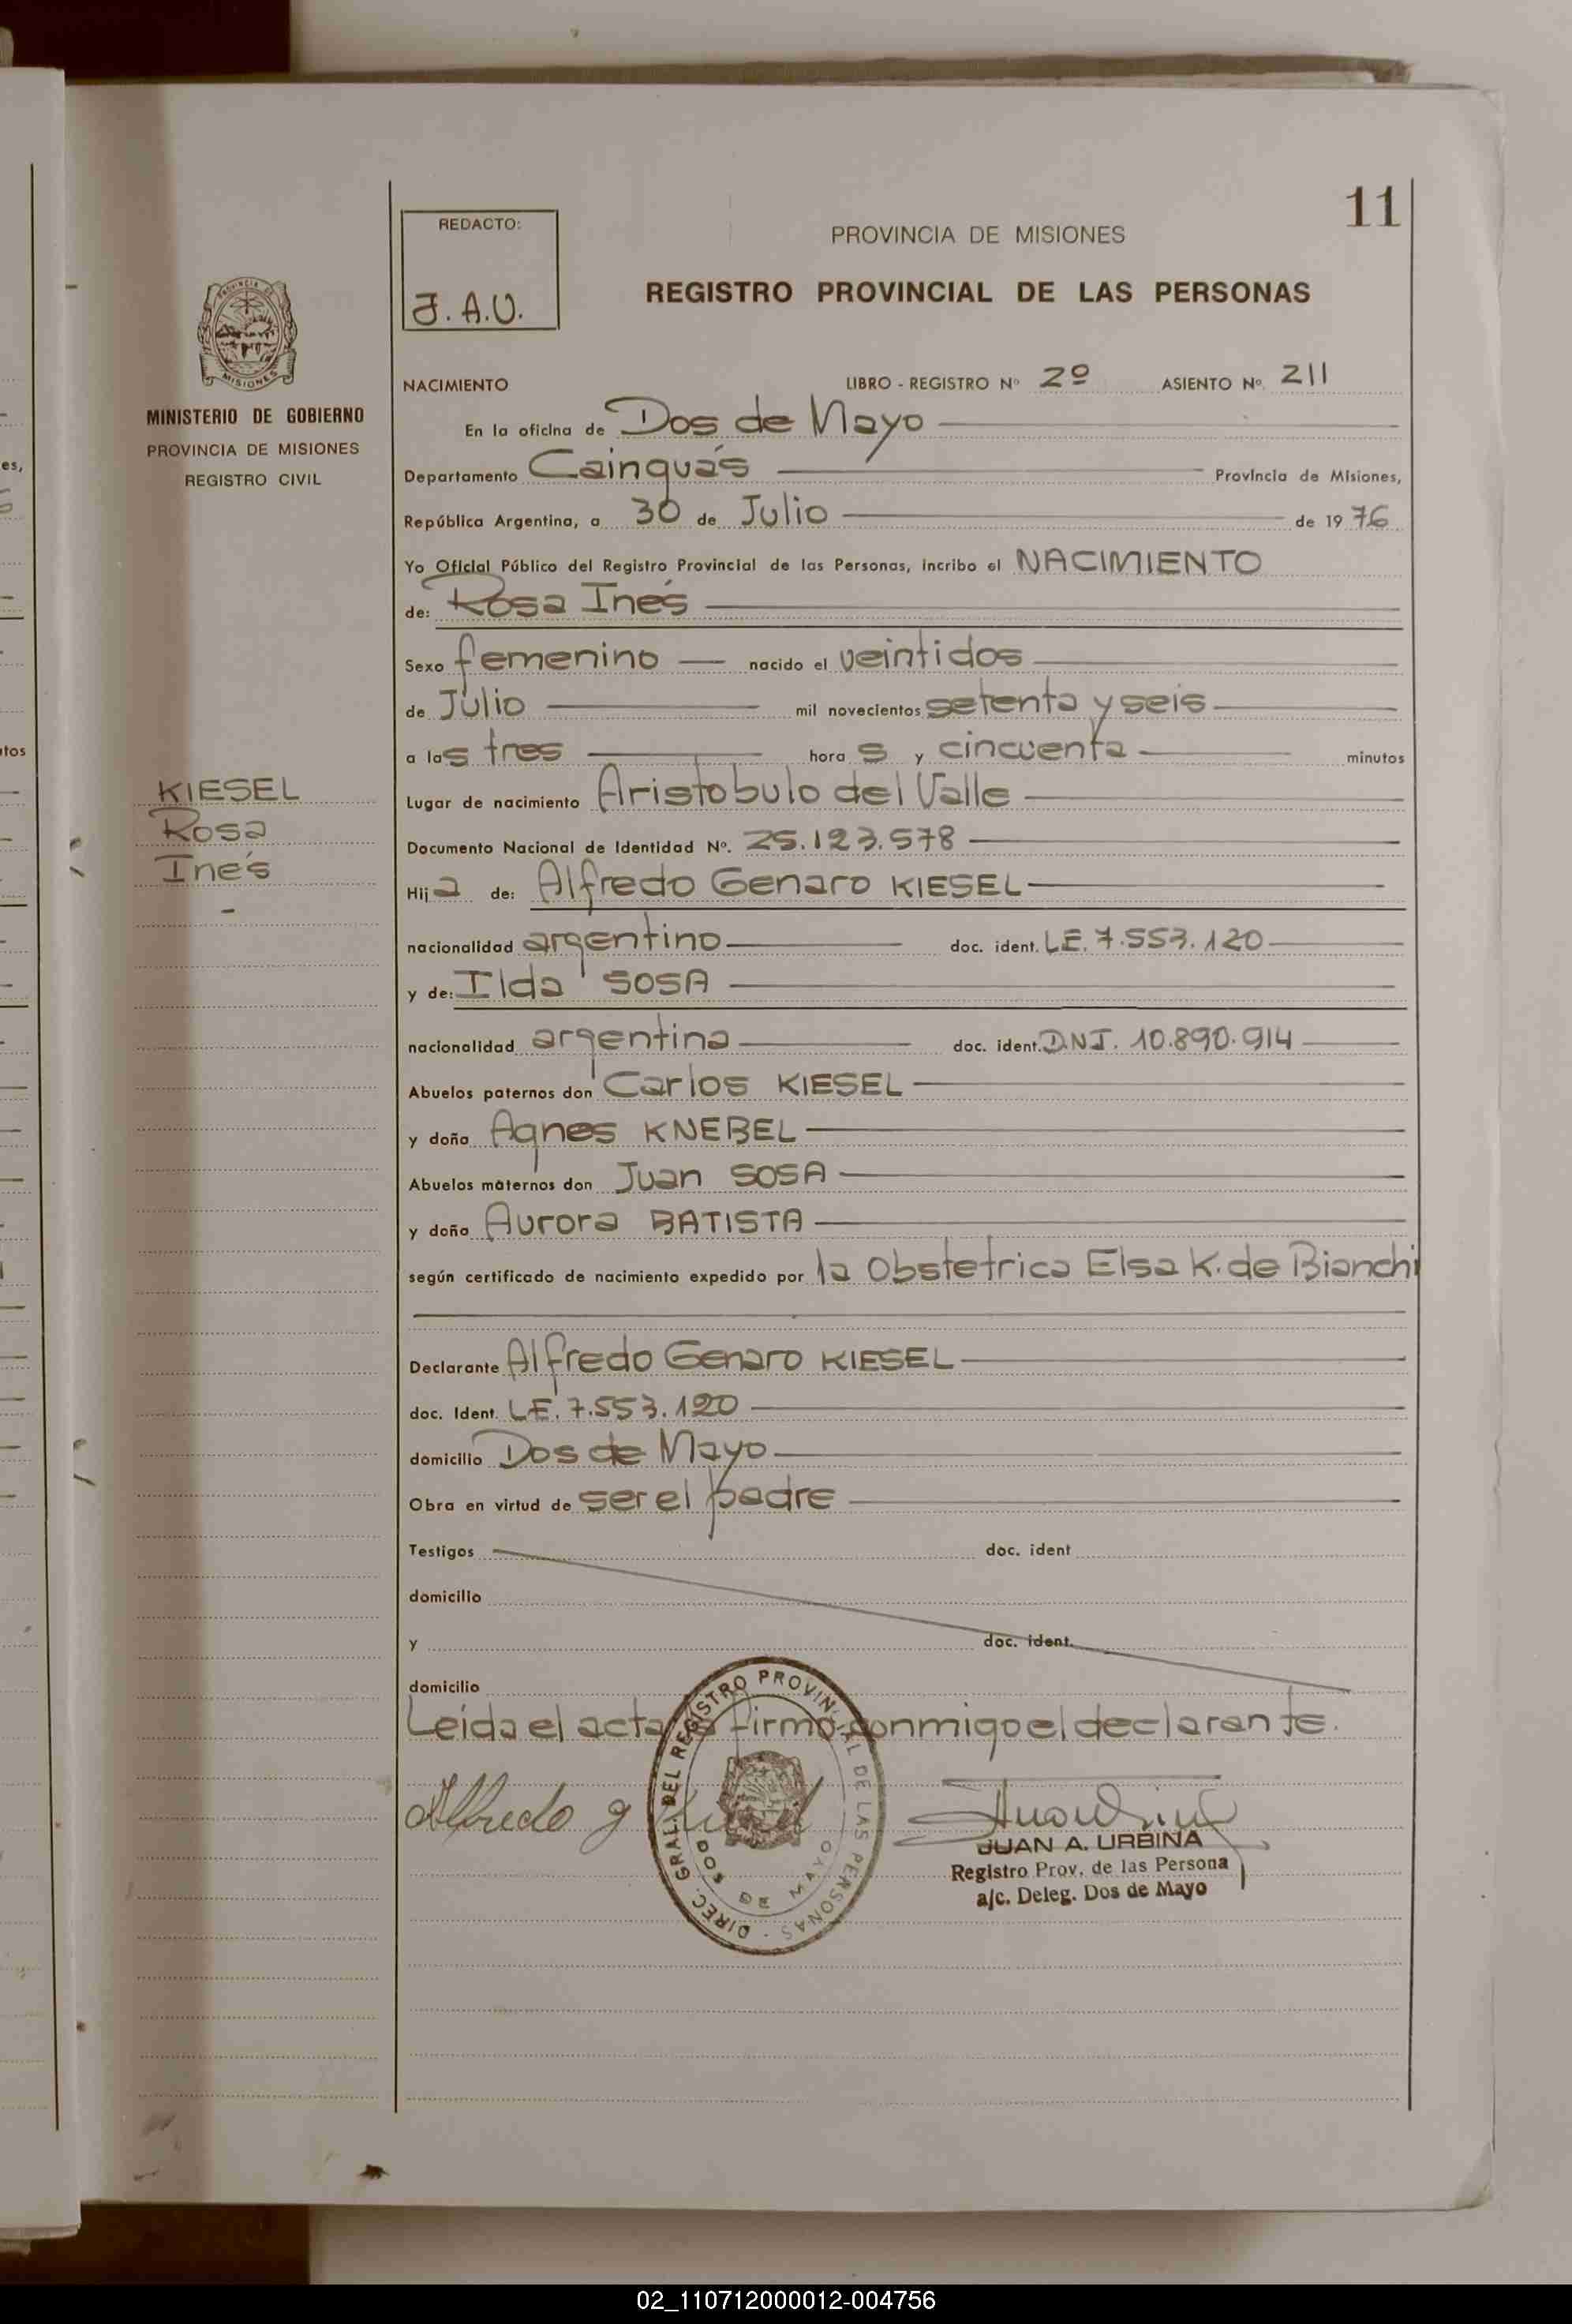 11
REDACTO:
J.A.U.
PROVINCIA DE MISIONES
REGISTRO PROVINCIAL DE LAS PERSONAS
PROVINCIA DE
MISIONES
MINISTERIO DE GOBIERNO
PROVINCIA DE MISIONES
REGISTRO CIVIL
KIESEL
Rosa
Inés
es,
utos
NACIMIENTO LIBRO - REGISTRO Nº 2º ASIENTO Nº. 211
En la oficina de Dos de Mayo
Departamento Cainguás Provincia de Misiones,
República Argentina, a 30 de Julio de 1976
Yo Oficial Público del Registro Provincial de las Personas, incribo el NACIMIENTO
de: Rosa Inés
Sexo femenino nacido el veintidos
de Julio mil novecientos setenta y seis
a las tres horas y cincuenta minutos
Lugar de nacimiento Aristobulo del Valle
Documento Nacional de Identidad Nº. 25.123.578
Hija de: Alfredo Genaro KIESEL
nacionalidad argentino doc. ident. LE. 7.553.120
y de: Ilda SOSA
nacionalidad argentina doc. ident. D.N.I. 10.890.914
Abuelos paternos don Carlos KIESEL
y doña Agnes KNEBEL
Abuelos maternos don Juan SOSA
y doña Aurora BATISTA
según certificado de nacimiento expedido por la Obstetrica Elsa K. de Bianchi
Declarante Alfredo Genaro KIESEL
doc. Ident. LE. 7.553.120
domicilio Dos de Mayo
Obra en virtud de ser el padre
Testigos doc. ident
domicilio
y doc. ident.
domicilio
Leída el acta la firmó conmigo el declarante.
Alfredo g Kiesel
DIREC. GRAL. DEL REGISTRO PROVINCIAL DE LAS PERSONAS -
DOS DE MAYO
JUAN A. URBINA
Registro Prov. de las Persona
a/c. Deleg. Dos de Mayo
02_110712000012-004756